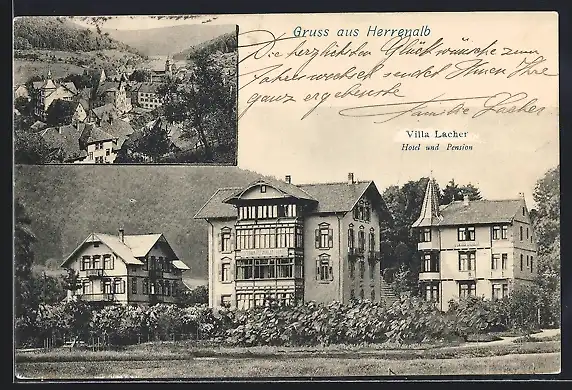 Gruss aus Herrenalb
Die herzlichsten Glückwünsche zum
Jahreswechsel sendet Ihnen Ihre
ganz ergebenste Familie Lacher
Villa Lacher
Hotel und Pension